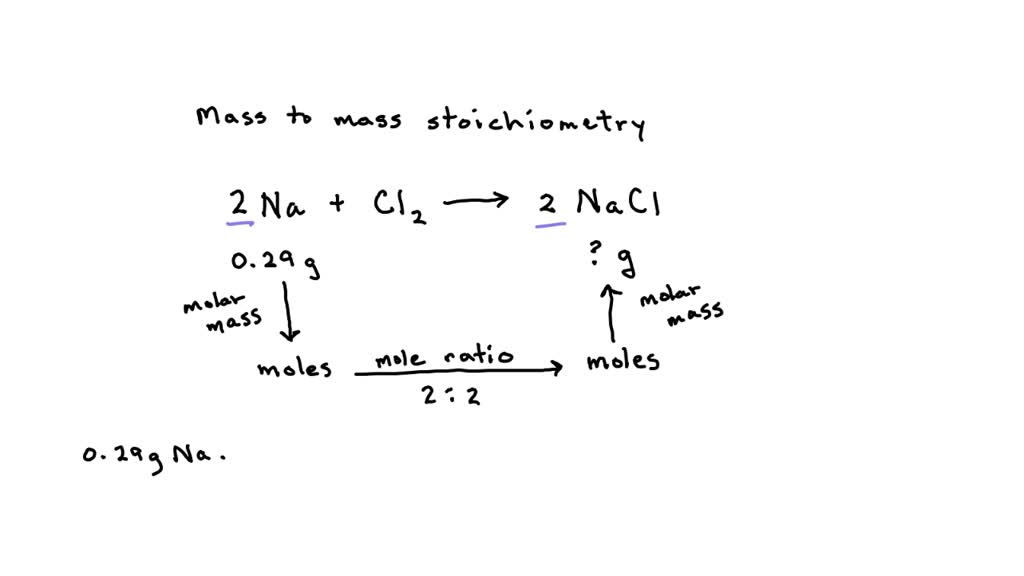 Mass to mass stoichiometry
2 Na + Cl₂ → 2 NaCl
0.29 g ? g
molar mass molar mass
moles mole ratio moles
2 : 2
0.29 g Na .